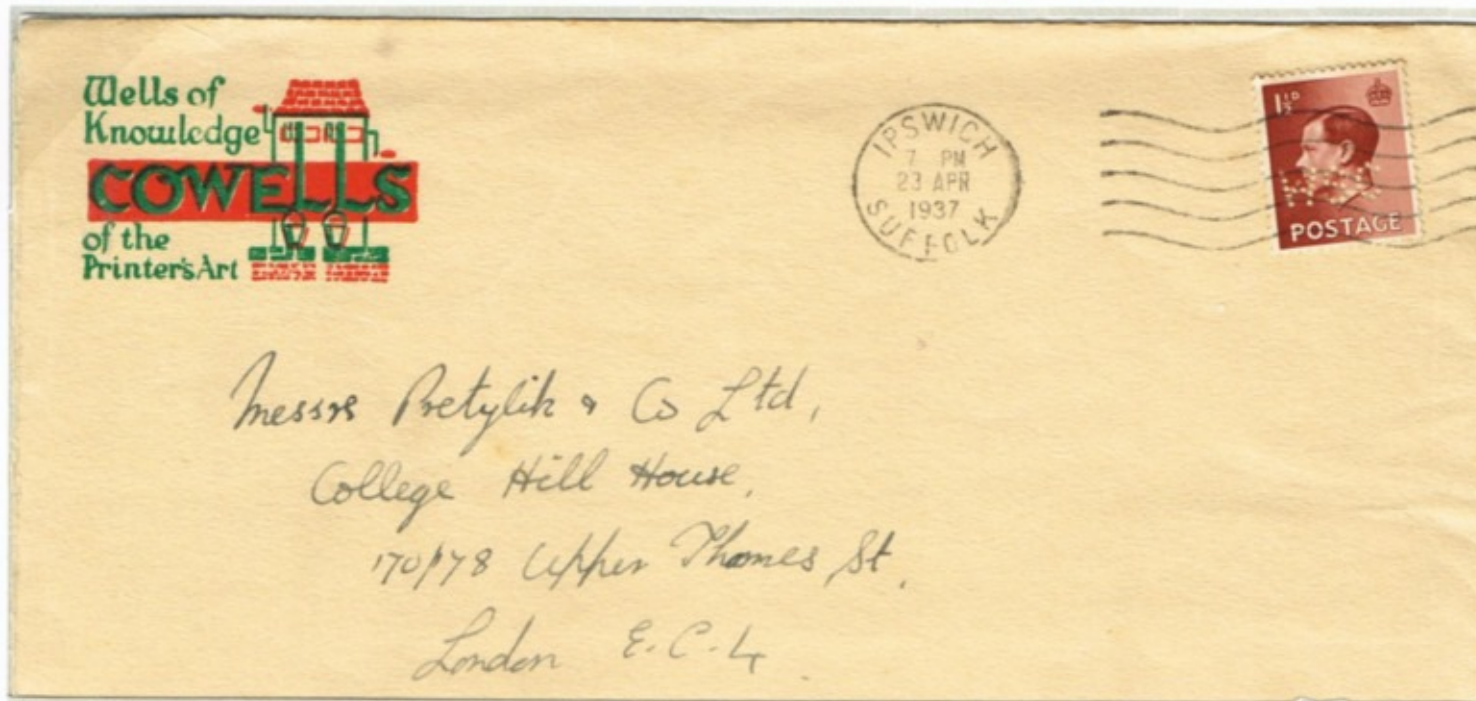 Wells of
Knowledge
COWELLS
of the
Printer's Art
IPSWICH
7 PM
23 APR
1937
SUFFOLK
1½D
POSTAGE
Messrs Pretylik & Co Ltd,
College Hill House,
170/178 Upper Thames St.
London E.C.4